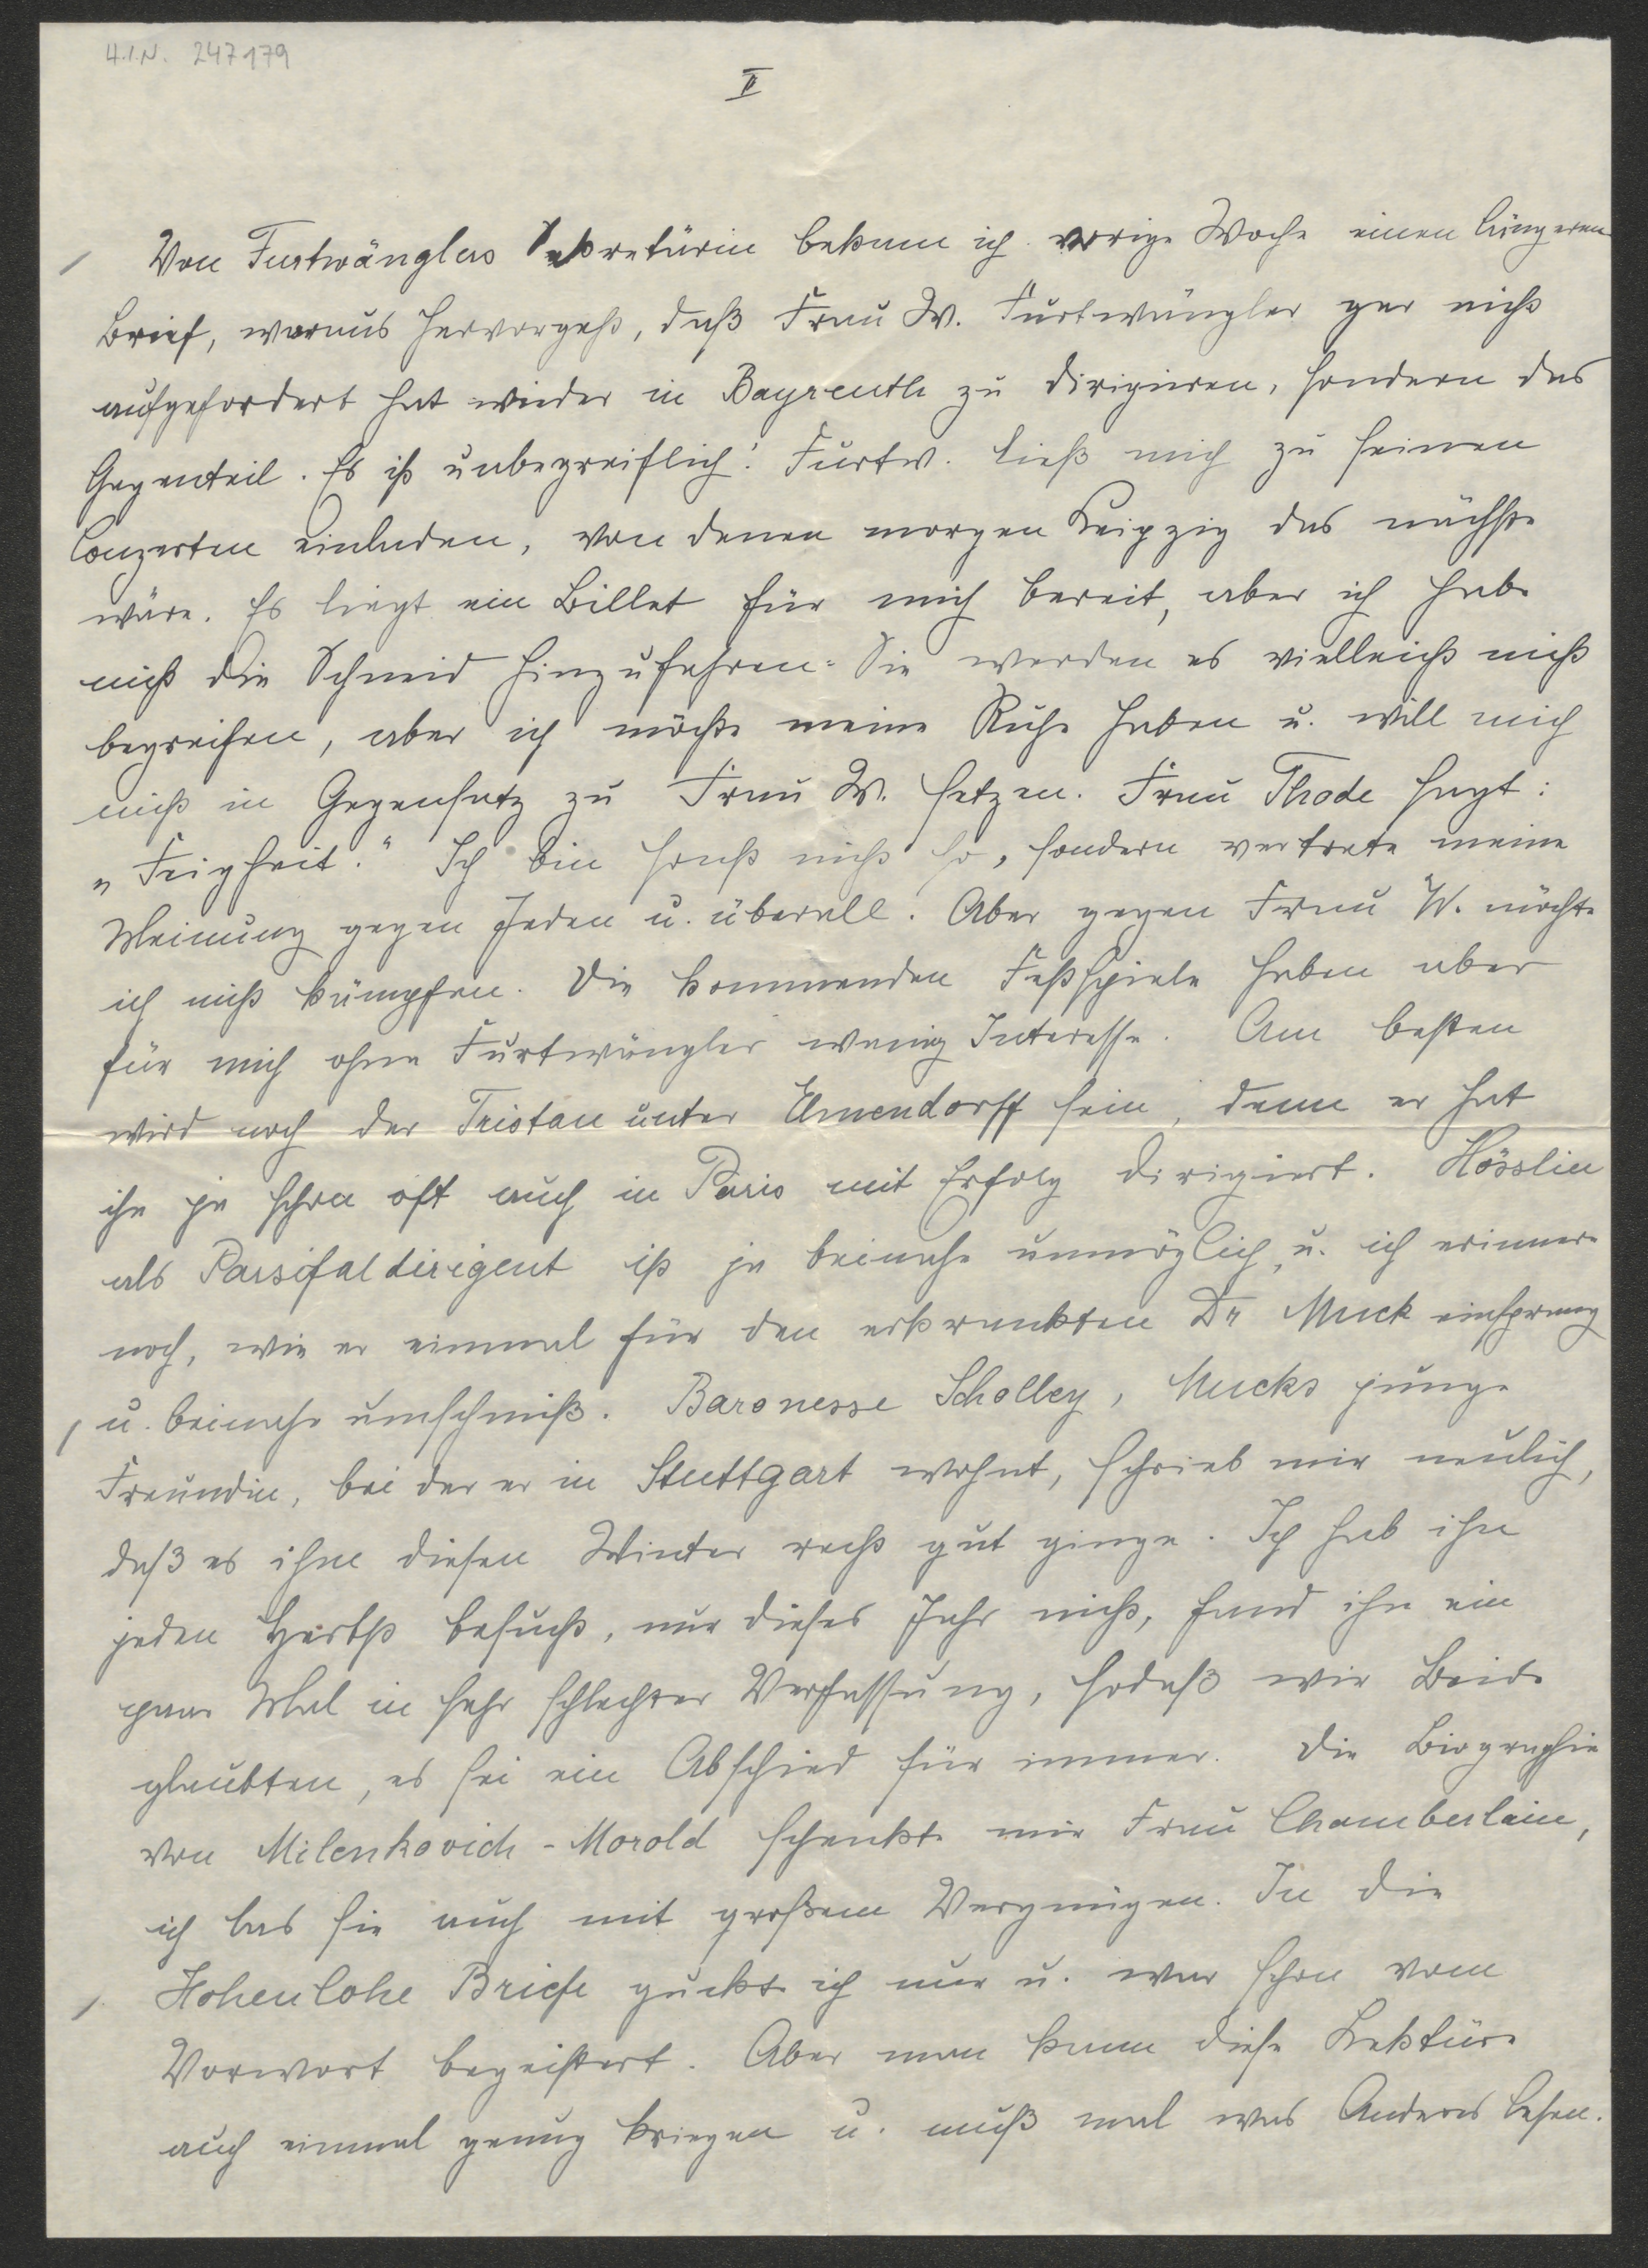 H.I.N. 247179
II
Von Furtwänglers Sekretärin bekam ich vorige Woche einen längeren
Brief, woraus hervorgeht, daß Frau W. Furtwängler gar nicht
aufgefordert hat wieder in Bayreuth zu dirigieren, sondern das
Gegenteil. Es ist unbegreiflich! Furtw. ließ mich zu seinen
Conzerten einladen, von denen morgen Leipzig das nächste
wäre. Es liegt ein Billet für mich bereit, aber ich habe
nicht die Schneid hinzufahren. Sie werden es vielleicht nicht
begreifen, aber ich möchte meine Ruhe haben u. will mich
nicht in Gegensatz zu Frau W. setzen. Frau Thode sagt:
„Feigheit." Ich bin sonst nicht so, sondern vertrete meine
Meinung gegen Jeden u. überall. Aber gegen Frau W. möchte
ich nicht kämpfen. Die kommenden Festspiele haben aber
für mich ohne Furtwängler wenig Interesse. Am besten
wird noch der Tristan unter Elmendorff sein, denn er hat
ihn ja schon oft auch in Paris mit Erfolg dirigiert. Hösslin
als Parsifaldirigent ist ja beinahe unmöglich, u. ich erinnere
noch, wie er einmal für den erkrankten Dr Muck einsprang
u. beinahe umschmiß. Baronesse Scholley, Mucks junge
Freundin, bei der er in Stuttgart wohnt, schrieb mir neulich,
daß es ihm diesen Winter recht gut ginge. Ich hab ihn
jeden Herbst besucht, nur dieses Jahr nicht, fand ihn ein
paar Mal in sehr schlechter Verfassung, sodaß wir Beide
glaubten, es sei ein Abschied für immer. Die Biographie
von Milenkovich-Morold schenkte mir Frau Chamberlain,
ich las sie auch mit großem Vergnügen. In die
Hohenlohe Briefe guckte ich nur u. war schon vom
Vorwort begeistert. Aber man kann diese Lektüre
auch einmal genug kriegen u. muß mal was Anderes lesen.